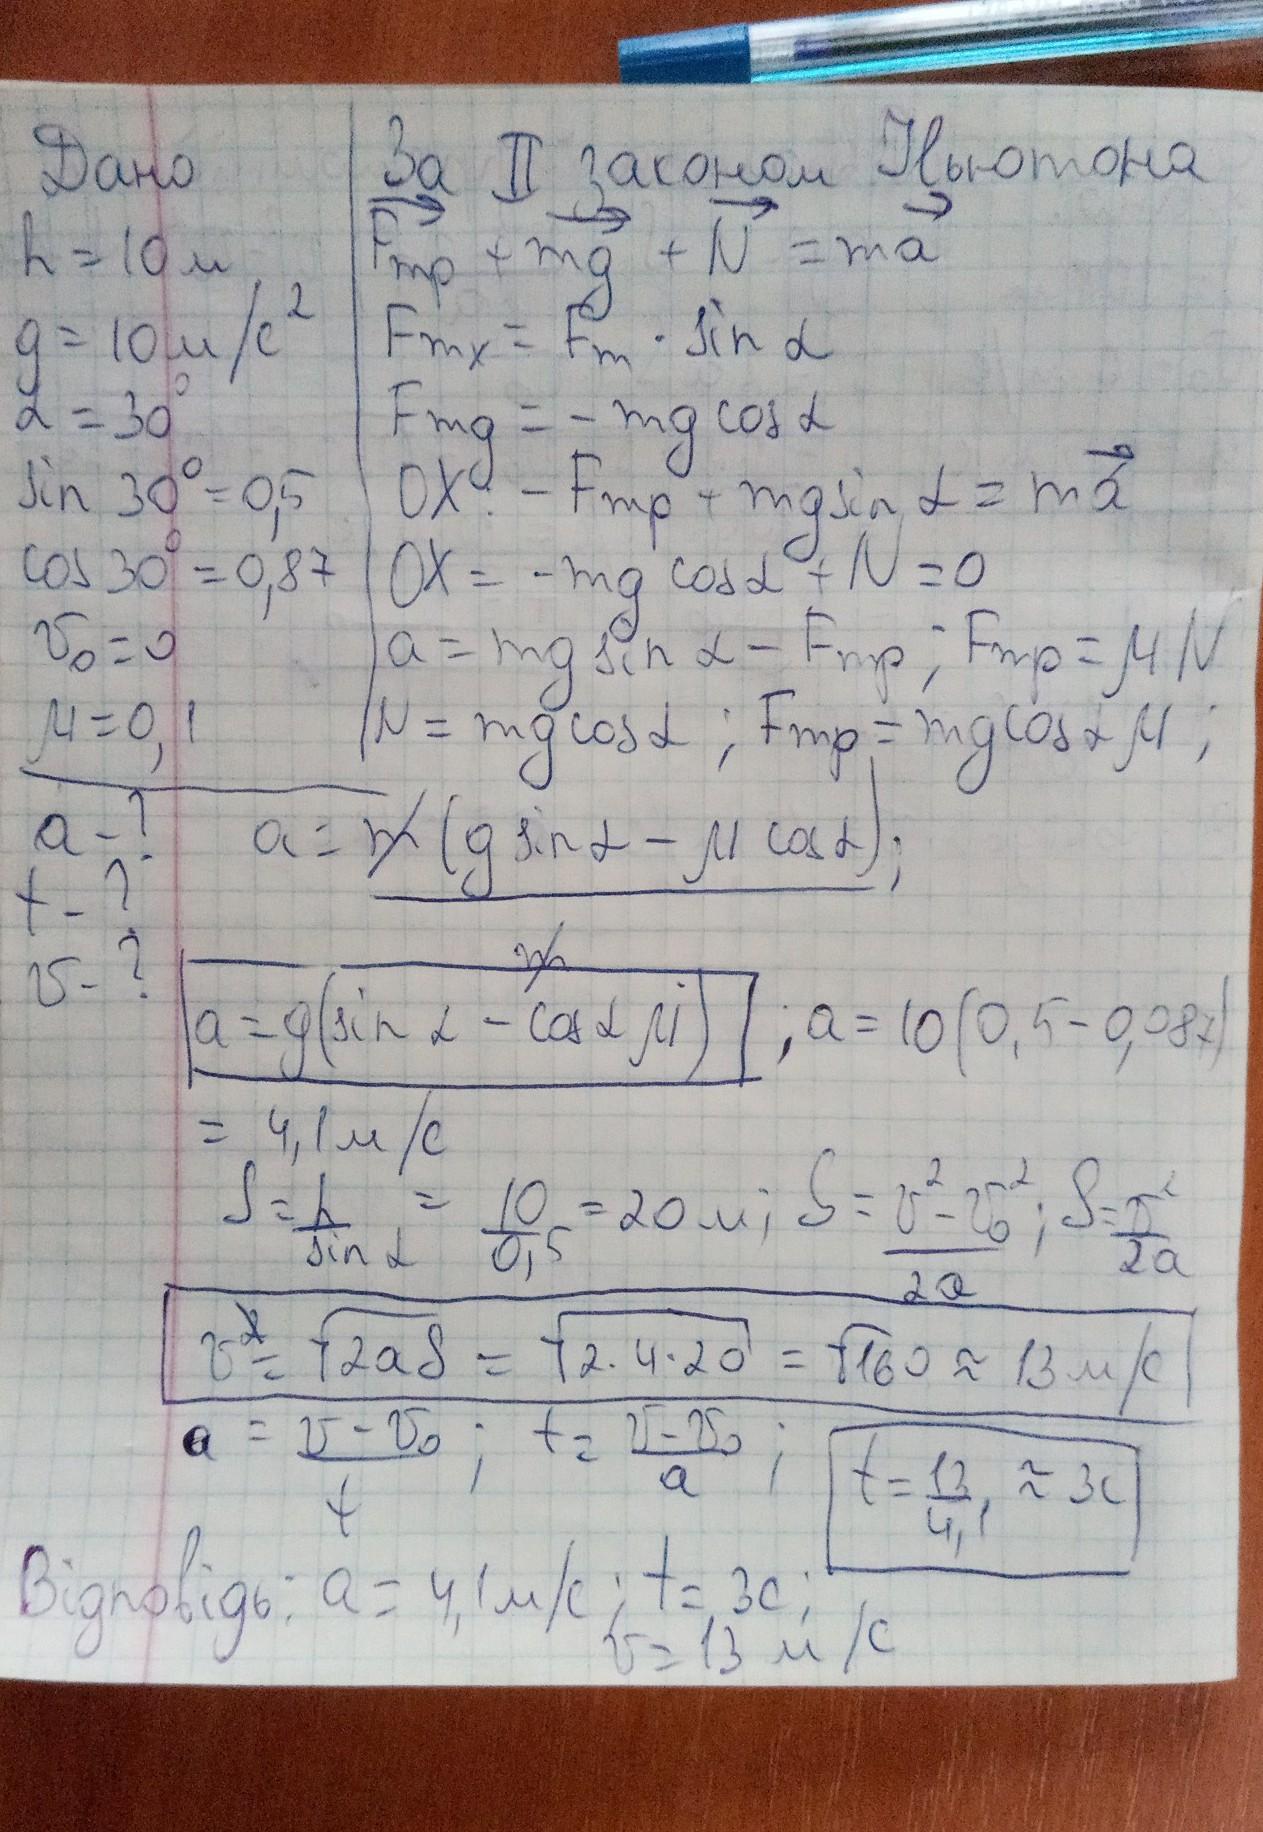 Дано
h = 10 м
g = 10 м/с²
α = 30°
sin 30° = 0,5
cos 30° = 0,87
v₀ = 0
μ = 0,1
a - ?
t - ?
v - ?
За II законом Ньютона
Fтр + mg + N = ma
Fтx = Fт · sin α
Fтy = - mg cos α
OX: - Fтр + mg sin α = ma
OX = - mg cos α + N = 0
a = mg sin α - Fтр ; Fтр = μN
N = mg cos α ; Fтр = mg cos α μ ;
a = m (g sin α - μ cos α) ;
m
a = g(sin α - cos α μ) ; a = 10 (0,5 - 0,087)
= 4,1 м/с
S = h/sin α = 10/0,5 = 20 м ; S = v² - v₀²/2a ; S = v²/2a
v² = √2aS = √2·4·20 = √160 ≈ 13 м/с
a = v - v₀/t ; t = v - v₀/a ; t = 13/4,1 ≈ 3с
Відповідь: a = 4,1 м/с ; t = 3с ;
v = 13 м/с